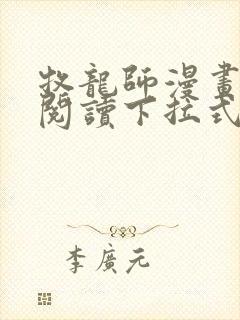 牧龍師漫畫
閱讀下拉式
李廣元